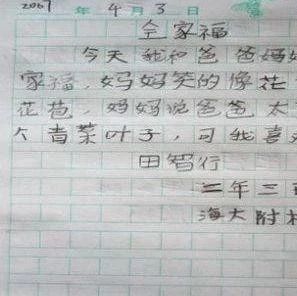 2007年4月3日
全家福
今天我和爸爸妈妈
家福，妈妈笑的像花
花苞，妈妈说爸爸太
个青菜叶子，可我喜
田智行
二年三
海大附校